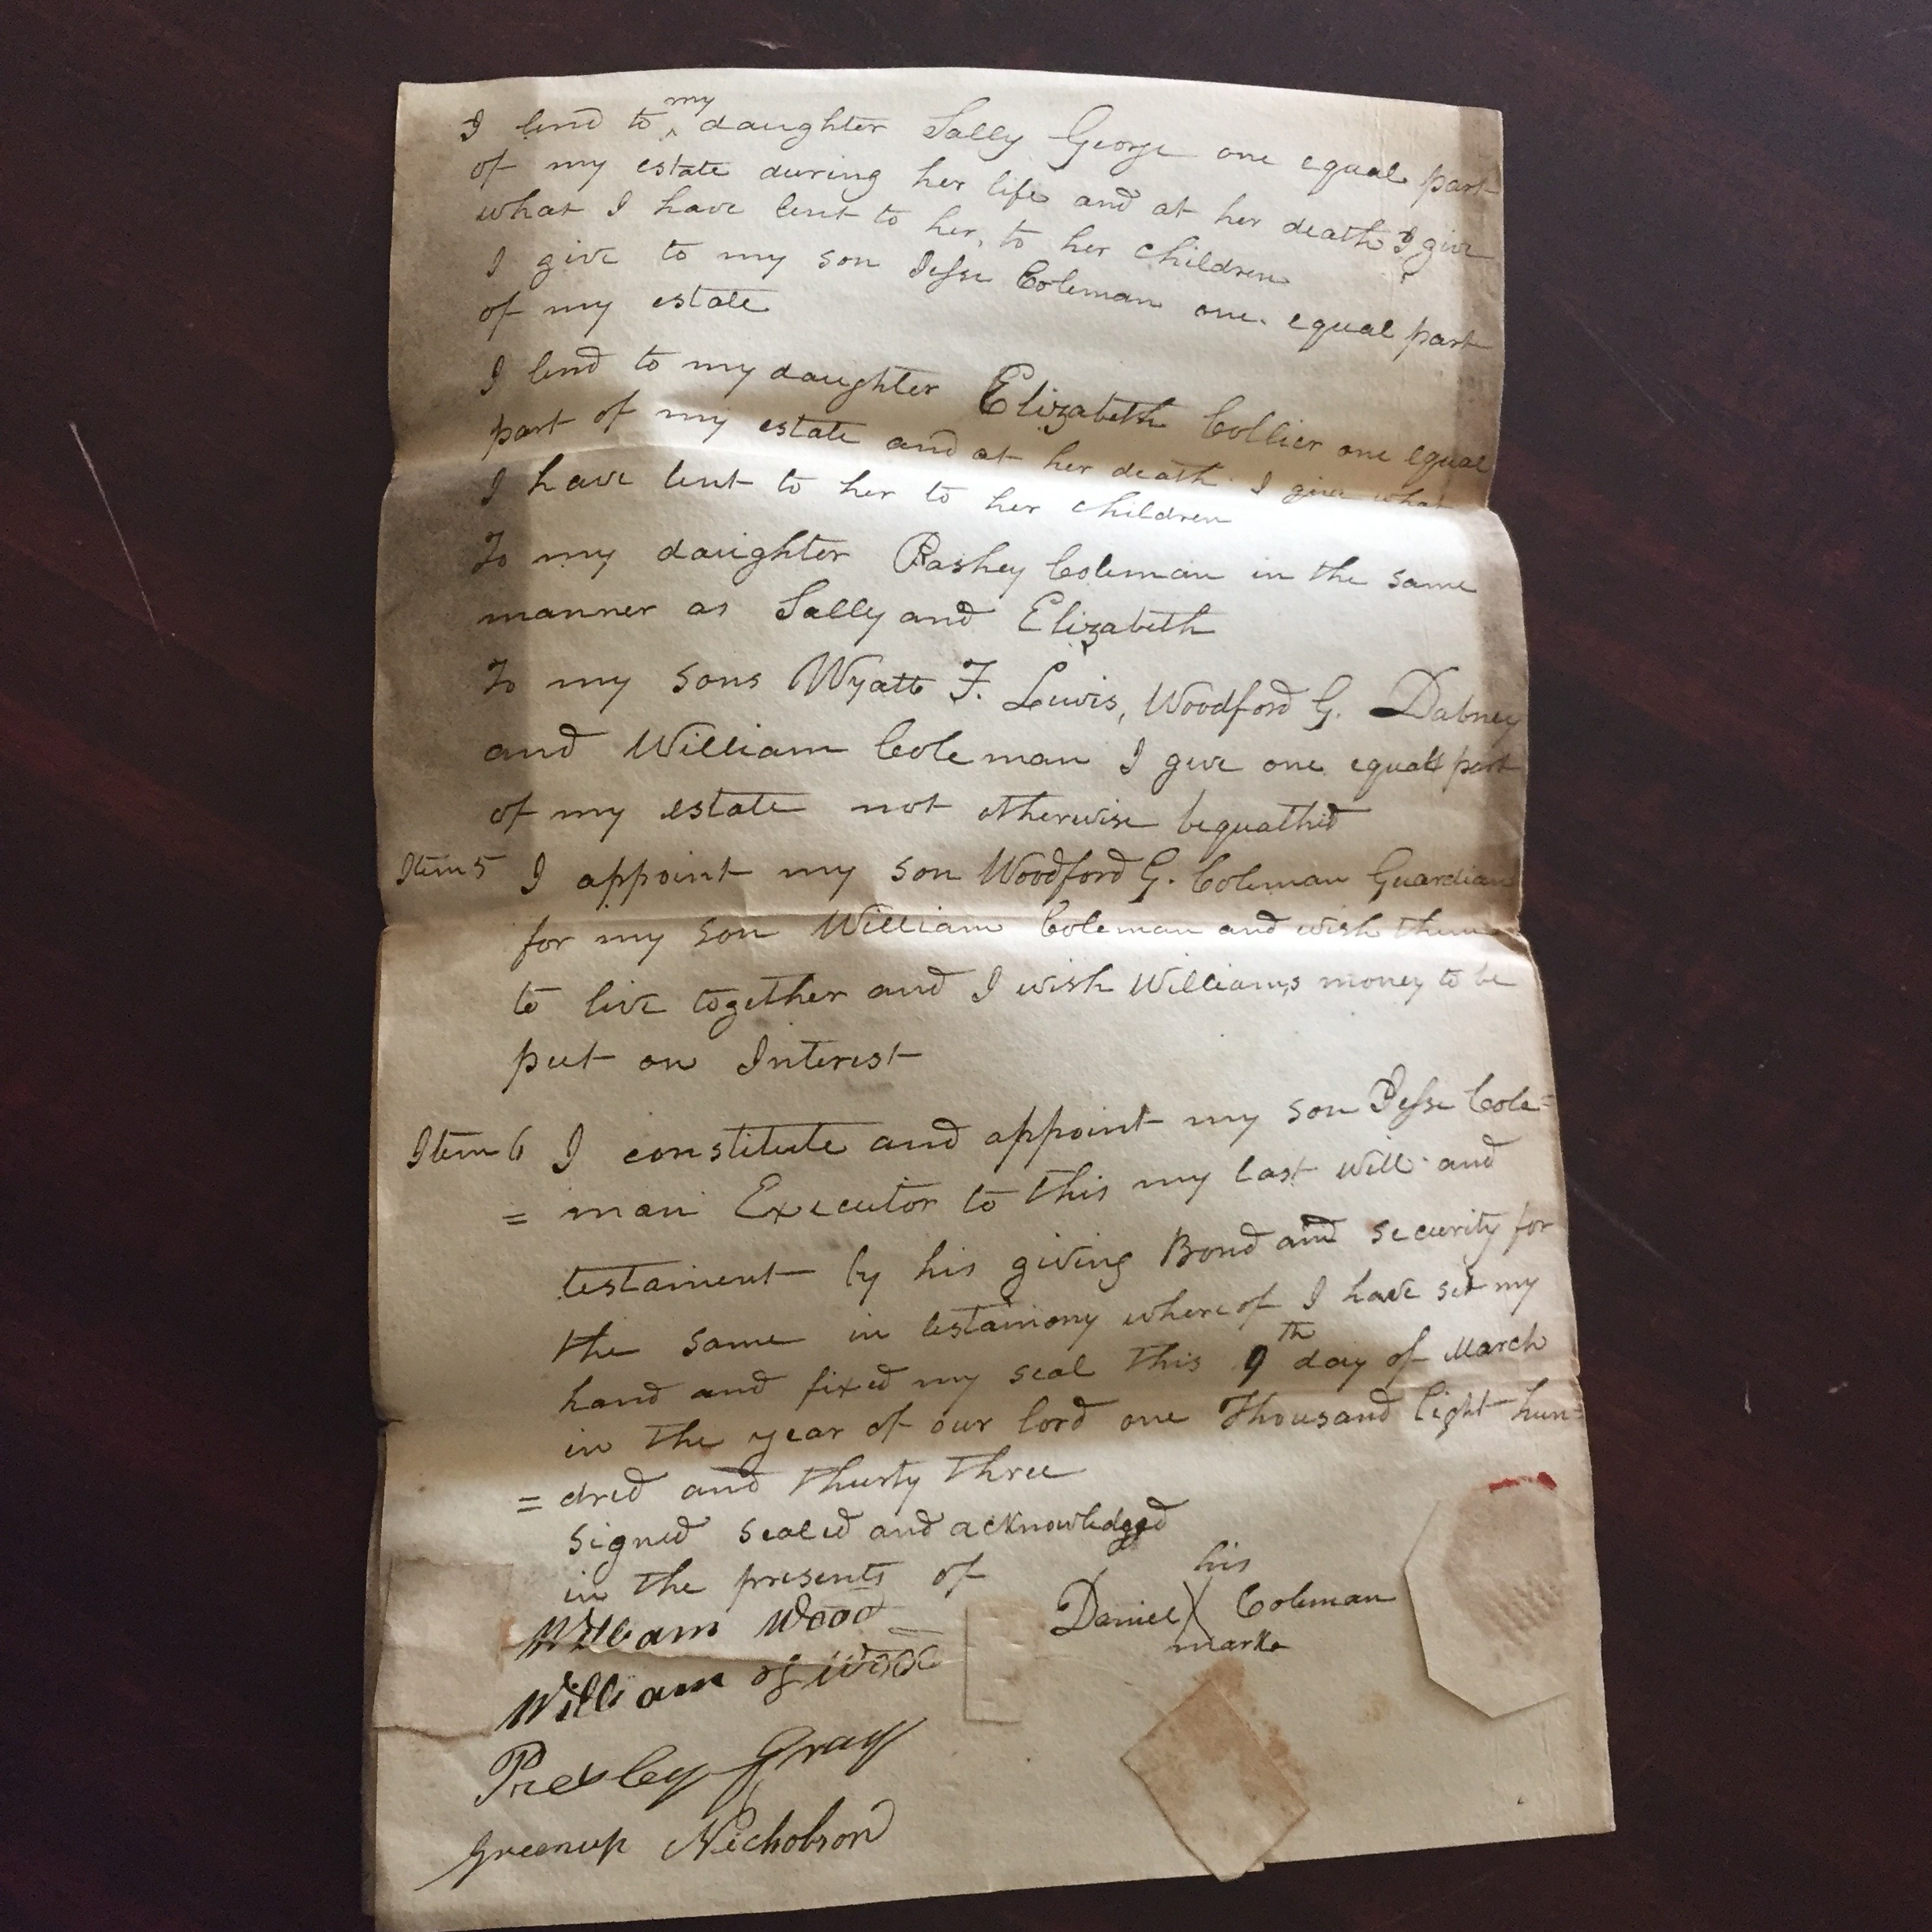 I lend to my daughter Sally George one equal part
of my estate during her life and at her death I give
what I have lent to her, to her children
I give to my son Jesse Coleman one equal part
of my estate
I lend to my daughter Elizabeth Collier one equal
part of my estate and at her death I give what
I have lent to her to her children
To my daughter Rashey Coleman in the same
manner as Sally and Elizabeth
To my sons Wyatt F. Lewis, Woodford G. Dabney
and William Coleman I give one equal part
of my estate not otherwise bequathed
Item 5 I appoint my son Woodford G. Coleman Guardian
for my son William Coleman and wish them
to live together and I wish William,s money to be
put on Interest
Item 6 I constitute and appoint my son Jesse Cole=
= man Executor to this my last will and
testament by his giving Bond and security for
the same in testamony whereof I have set my
hand and fixed my seal this 9th day of March
in the year of our lord one Thousand Eight hun=
= dred and thirty three
signed sealed and acknowledged
in the presents of
his
Daniel X Coleman
mark
William Wood
William of Wood
Presley Gray
Greenup Nicholson